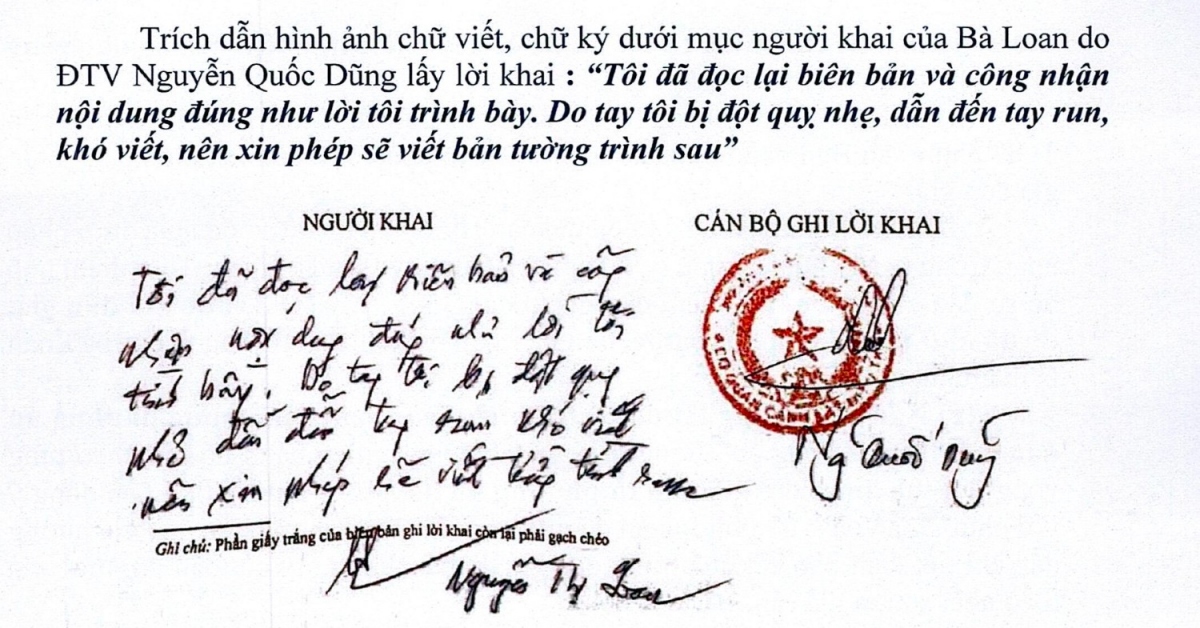 Trích dẫn hình ảnh chữ viết, chữ ký dưới mục người khai của Bà Loan do
ĐTV Nguyễn Quốc Dũng lấy lời khai : “Tôi đã đọc lại biên bản và công nhận
nội dung đúng như lời tôi trình bày. Do tay tôi bị đột quỵ nhẹ, dẫn đến tay run,
khó viết, nên xin phép sẽ viết bản tường trình sau”
NGƯỜI KHAI
CÁN BỘ GHI LỜI KHAI
Tôi đã đọc lại biên bản và công
nhận nội dung đúng như lời tôi
trình bày. Do tay tôi bị đột quỵ
nhẹ dẫn đến tay run khó viết
nên xin phép sẽ viết bảng
CƠ QUAN CẢNH SÁT
Ng Quốc Dũng
Ghi chú: Phần giấy trắng của biên bản ghi lời khai còn lại phải gạch chéo
Nguyễn Thị Loan